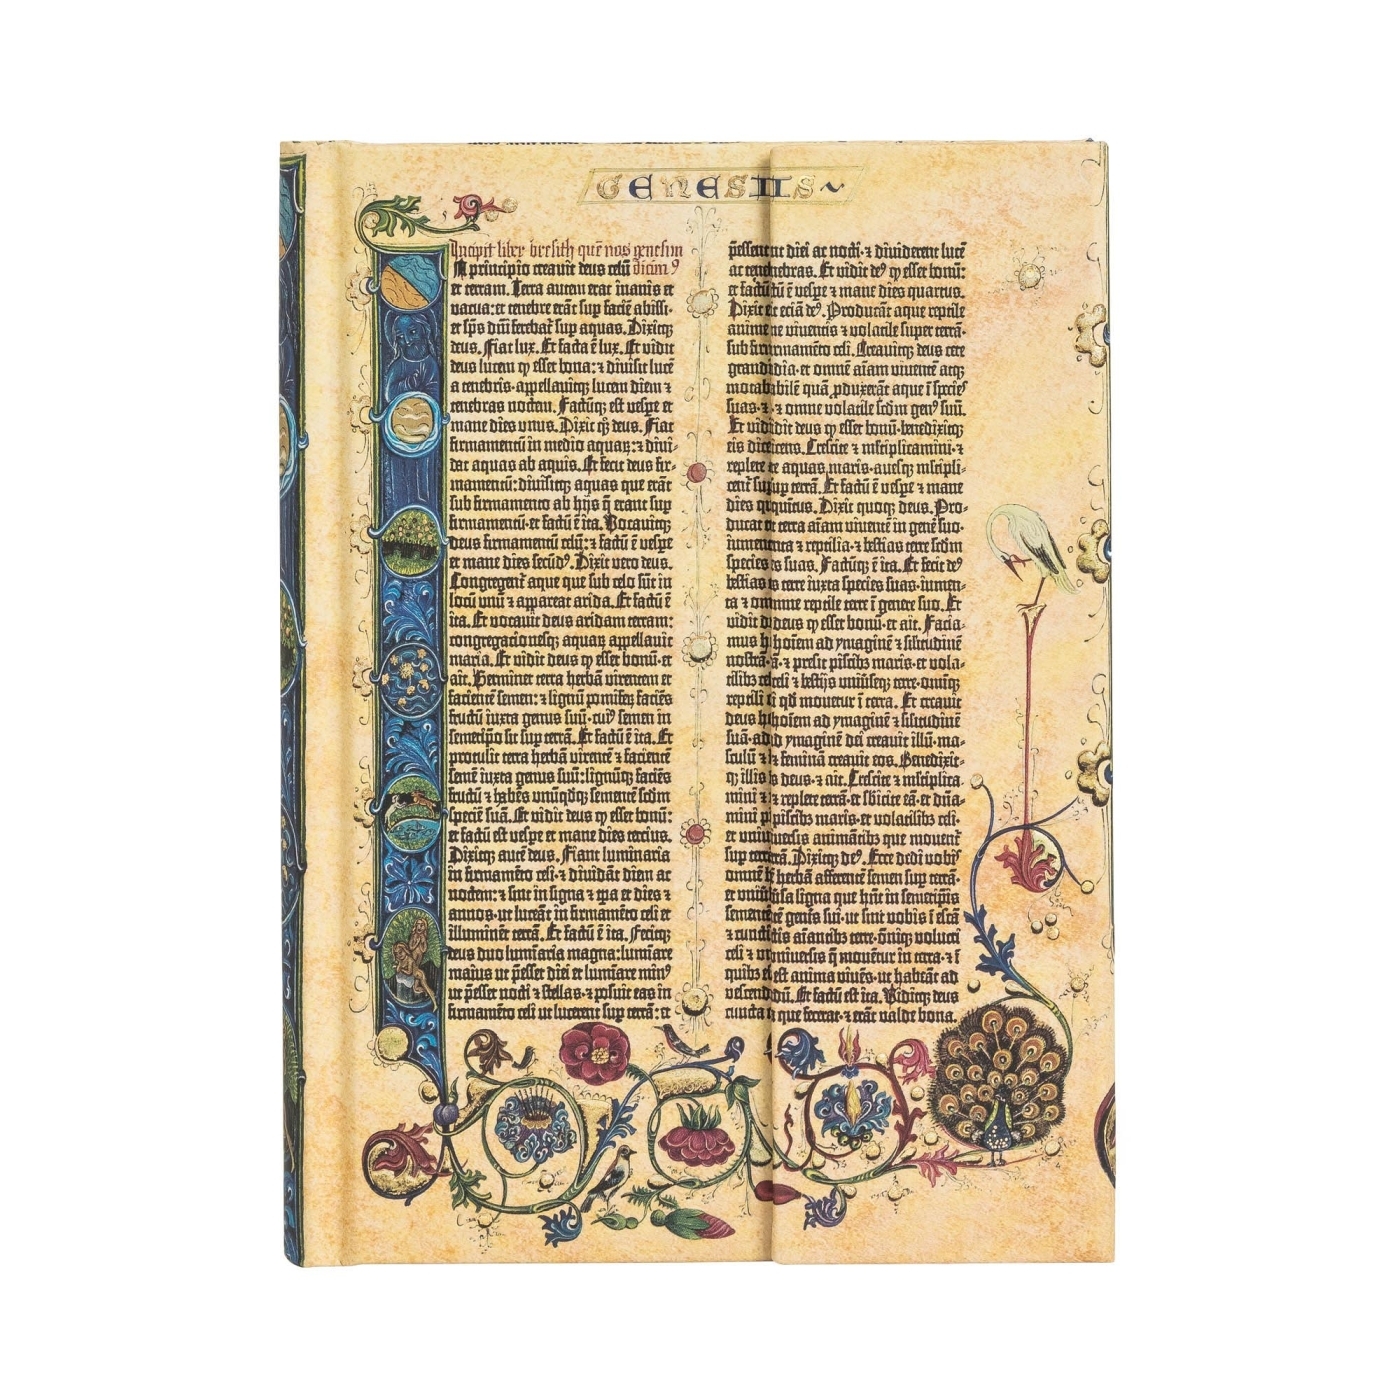 GENESIS
Incipit liber bresith quē nos genesim
In principio creavit deus celū dicim⁹
et terram. Terra autem erat inanis et
vacua: et tenebre erāt sup faciē abissi:
et sp̄s dn̄i ferebat̄ sup aquas. Dixitq̄
deus. Fiat lux. Et facta ē lux. Et vidit
deus lucem ꝙ esset bona: ⁊ divisit lucē
a tenebris. appellavitq̄ lucem diem ⁊
tenebras noctem. Factūq̄ est vespe et
mane dies unus. Dixit qꝫ deus. Fiat
firmamentū in medio aquaꝝ: ⁊ divi-
dat aquas ab aquis. Et fecit deus fir-
mamentū: divisitq̄ aquas que erāt
sub firmamento ab hijs q̄ erant sup
firmamentū. et factū ē ita. Vocavitq̄
deus firmamentū celū: ⁊ factū ē vespe
et mane dies secūd⁹. Dixit vero deus.
Congregent̄ aque que sub celo sūt in
locū unū ⁊ appareat arida. Et factū ē
ita. Et vocavit deus aridam terram:
congregacionesq̄ aquaꝝ appellavit
maria. Et vidit deus ꝙ esset bonū. et
ait. Germinet terra herbā virentem et
facientē semen: ⁊ lignū pomifeꝝ faciēs
fructū iuxta genus suū. cui⁹ semen in
semetipō sit sup terrā. Et factū ē ita. Et
protulit terra herbā virentē ⁊ facientē
semē iuxta genus suū: lignūq̄ faciēs
fructū ⁊ habēs unūqdq̄ sementē scdm
speciē suā. Et vidit deus ꝙ esset bonū:
et factū est vespe et mane dies tercius.
Dixitq̄ autē deus. Fiant luminaria
in firmamēto celi. ⁊ dividāt diem ac
noctem: ⁊ sint in signa ⁊ tp̄a et dies ⁊
annos. ut luceāt in firmamēto celi et
illuminēt terrā. Et factū ē ita. Fecitq̄
deus duo luminaria magna: luminare
maius ut p̄esset diei et luminare min⁹
ut p̄esset nocti ⁊ stellas. ⁊ posuit eas in
firmamēto celi ut lucerent sup terrā: et
p̄essent diei ac nocti. ⁊ dividerent lucē
ac tenebras. Et vidit de⁹ ꝙ esset bonū:
et factū ē vespe ⁊ mane dies quartus.
Dixit eciā de⁹. Producāt aque reptile
anime viventis ⁊ volatile super terrā.
sub firmamēto celi. Creavitq̄ deus cete
grandia. et omnē aīam viventē atq̄
motabilē quā pduxerāt aque ī species
suas. ⁊ omne volatile scdm gen⁹ suū.
Et vidit deus ꝙ esset bonū. benedixitq̄
eis dicens. Crescite ⁊ mltiplicamini. ⁊
replete aquas maris. avesq̄ mltipli-
cent̄ sup terrā. Et factū ē vespe ⁊ mane
dies quintus. Dixit quoq̄ deus. Pro-
ducat terra aīam viventē in genē suo.
iumenta ⁊ reptilia. ⁊ bestias terre scdm
species suas. Factūq̄ ē ita. Et fecit de⁹
bestias terre iuxta species suas. iumen-
ta ⁊ omne reptile terre ī genere suo. Et
vidit deus ꝙ esset bonū. et ait. Facia-
mus hoīem ad ymaginē ⁊ silitudinē
nostrā. ⁊ presit piscibꝫ maris. et vola-
tilibꝫ celi ⁊ bestijs univseq̄ terre. omniq̄
reptili qd movetur ī terra. Et creavit
deus hoīem ad ymaginē ⁊ silitudinē
suā. ad ymaginē dei creavit illū. ma-
sculū ⁊ feminā creavit eos. Benedixit-
q̄ illis deus. ⁊ ait. Crescite ⁊ mltiplica-
mini ⁊ replete terrā. et sbicite eā. et dn̄a-
mini piscibꝫ maris. et volatilibꝫ celi.
et universis animātibꝫ que movent̄
sup terrā. Dixitq̄ de⁹. Ecce dedi vobis
omnē herbā afferentē semen sup terrā.
et univsa ligna que hn̄t in semetip̄is
sementē genīs sui. ut sint vobis ī escā
⁊ cunctis aīantibꝫ terre. om̄iq̄ volucri
celi ⁊ universis q̄ moventur in terra. ⁊ ī
quibꝫ est anima vivēs. ut habeāt ad
vescendū. Et factū est ita. Viditq̄ deus
cuncta que fecerat. ⁊ erāt valde bona.